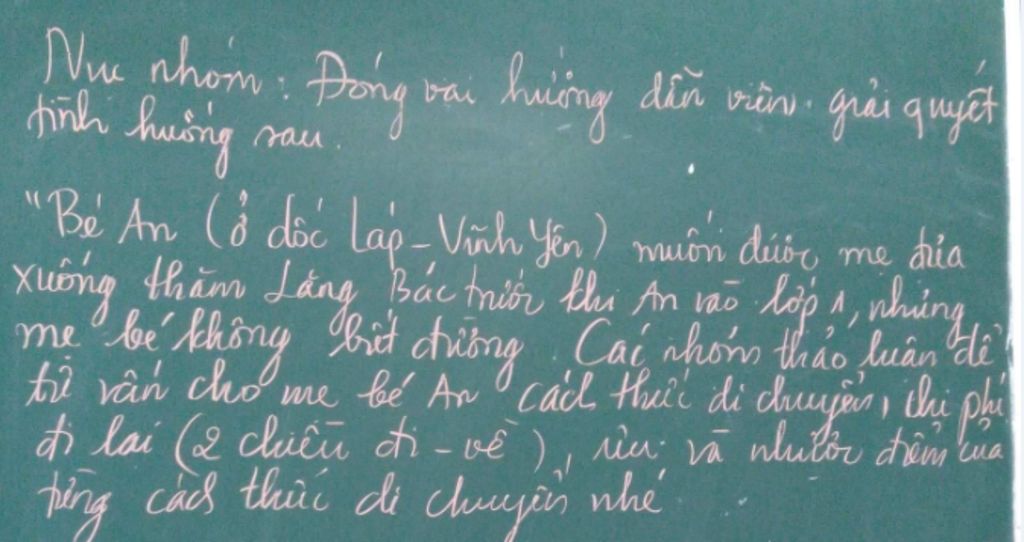 nhóm: Đóng vai hướng dẫn viên giải quyết
tình huống sau.
"Bé An (ở dốc Láp - Vĩnh Yên) muốn được mẹ đưa
xuống thăm Lăng Bác trước khi An vào lớp 1, nhưng
mẹ bé không biết đường. Các nhóm thảo luận để
tư vấn cho mẹ bé An cách thức di chuyển, chi phí
đi lại (2 chiều đi - về), ưu và nhược điểm của
từng cách thức di chuyển nhé